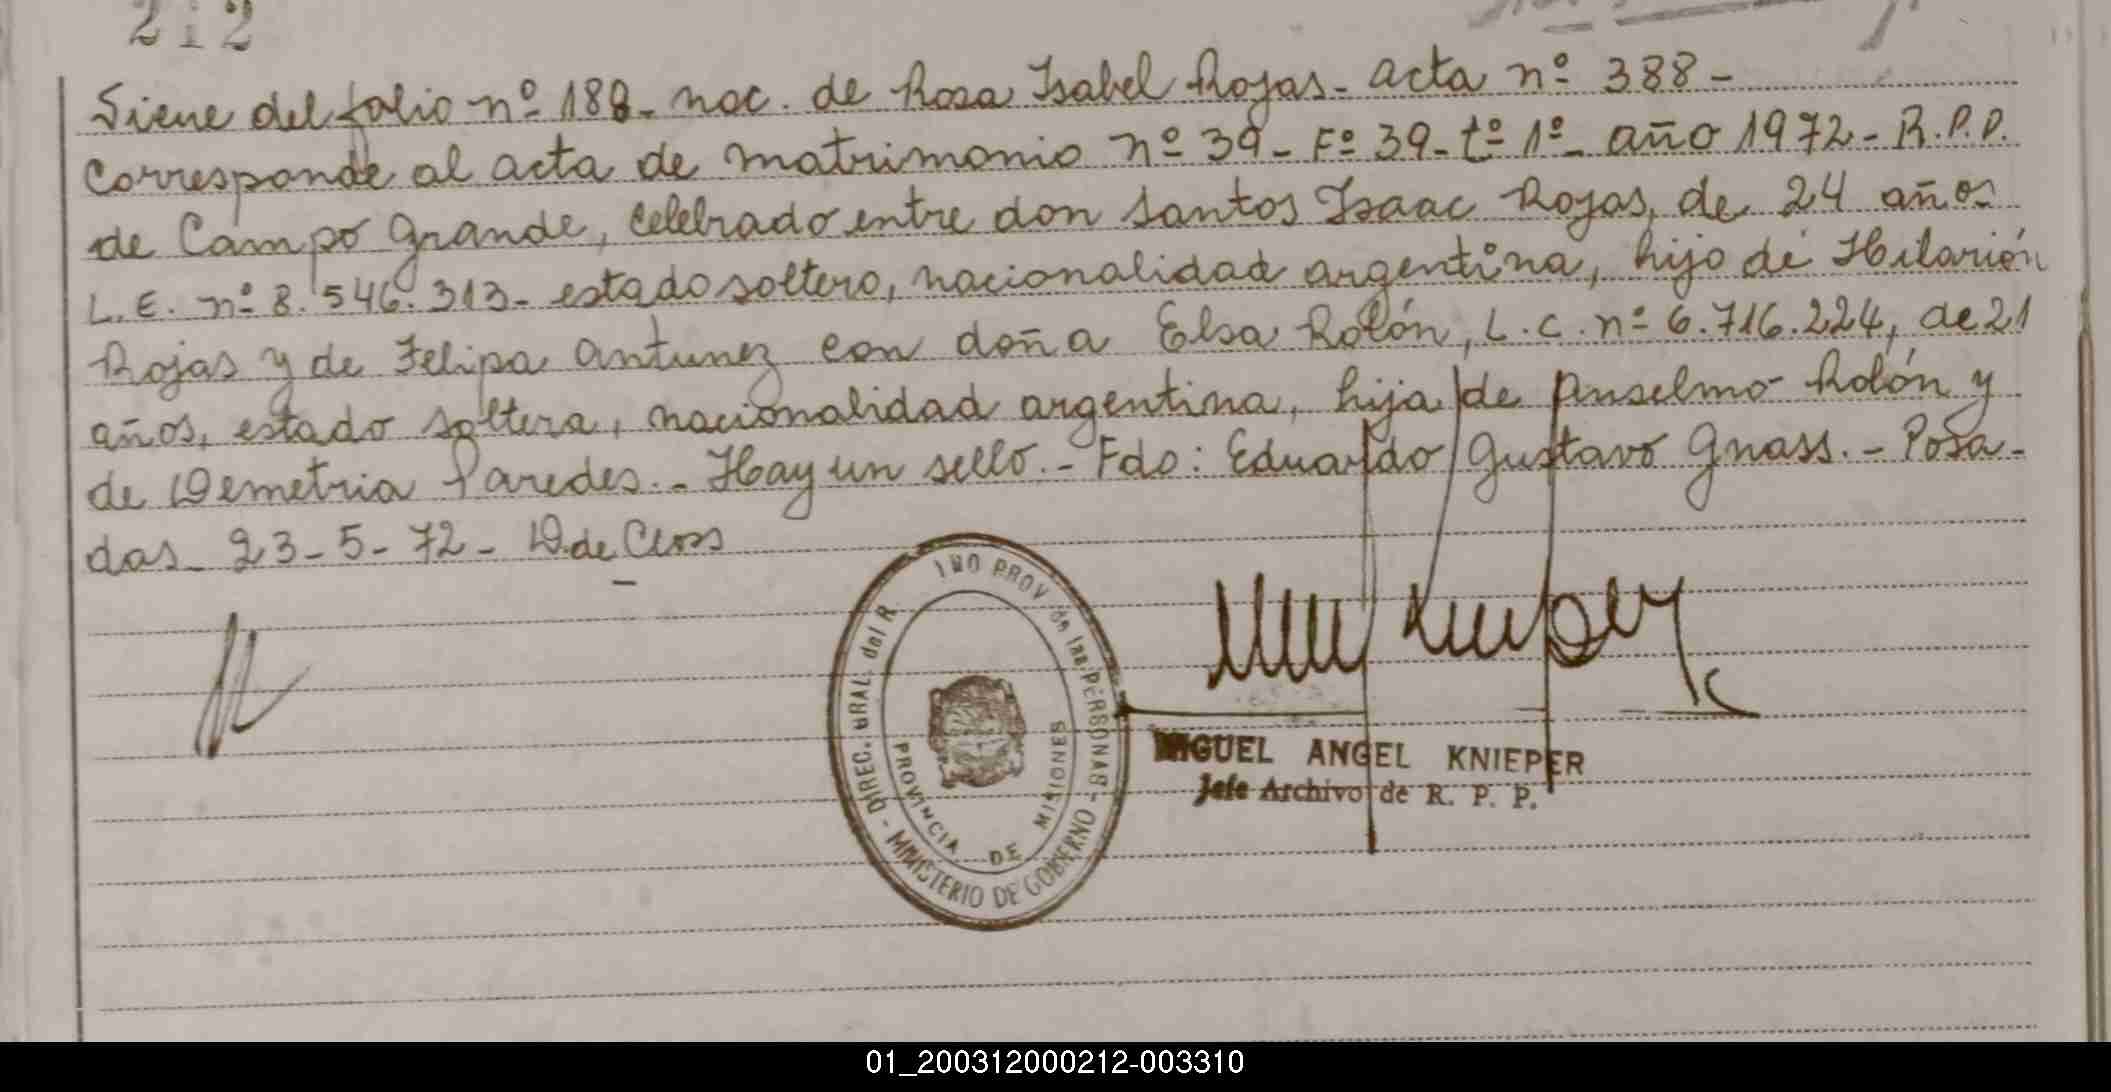 212
Viene del folio nº 188- nac. de Rosa Isabel Rojas- acta nº 388-
Corresponde al acta de matrimonio nº 39- Fº 39- tº 1º- año 1972- R.P.P.
de Campo Grande, celebrado entre don Santos Isaac Rojas, de 24 años
L.E. nº 8.546.313- estado soltero, nacionalidad argentina, hijo de Hilarión
Rojas y de Felipa Antunez con doña Elsa Rolón, L.C. nº 6.716.224, de 21
años, estado soltera, nacionalidad argentina, hija de Anselmo Rolón y
de Demetria Paredes.- Hay un sello.- Fdo: Eduardo Gustavo Gnass.- Posa-
das- 23-5-72- D. de
DIREC. GRAL. del R
PROV de las PERSONAS - MINISTERIO DE GOBIERNO -
PROVINCIA DE MISIONES
MIGUEL ANGEL KNIEPER
Jefe Archivo de R. P. P.
01_200312000212-003310